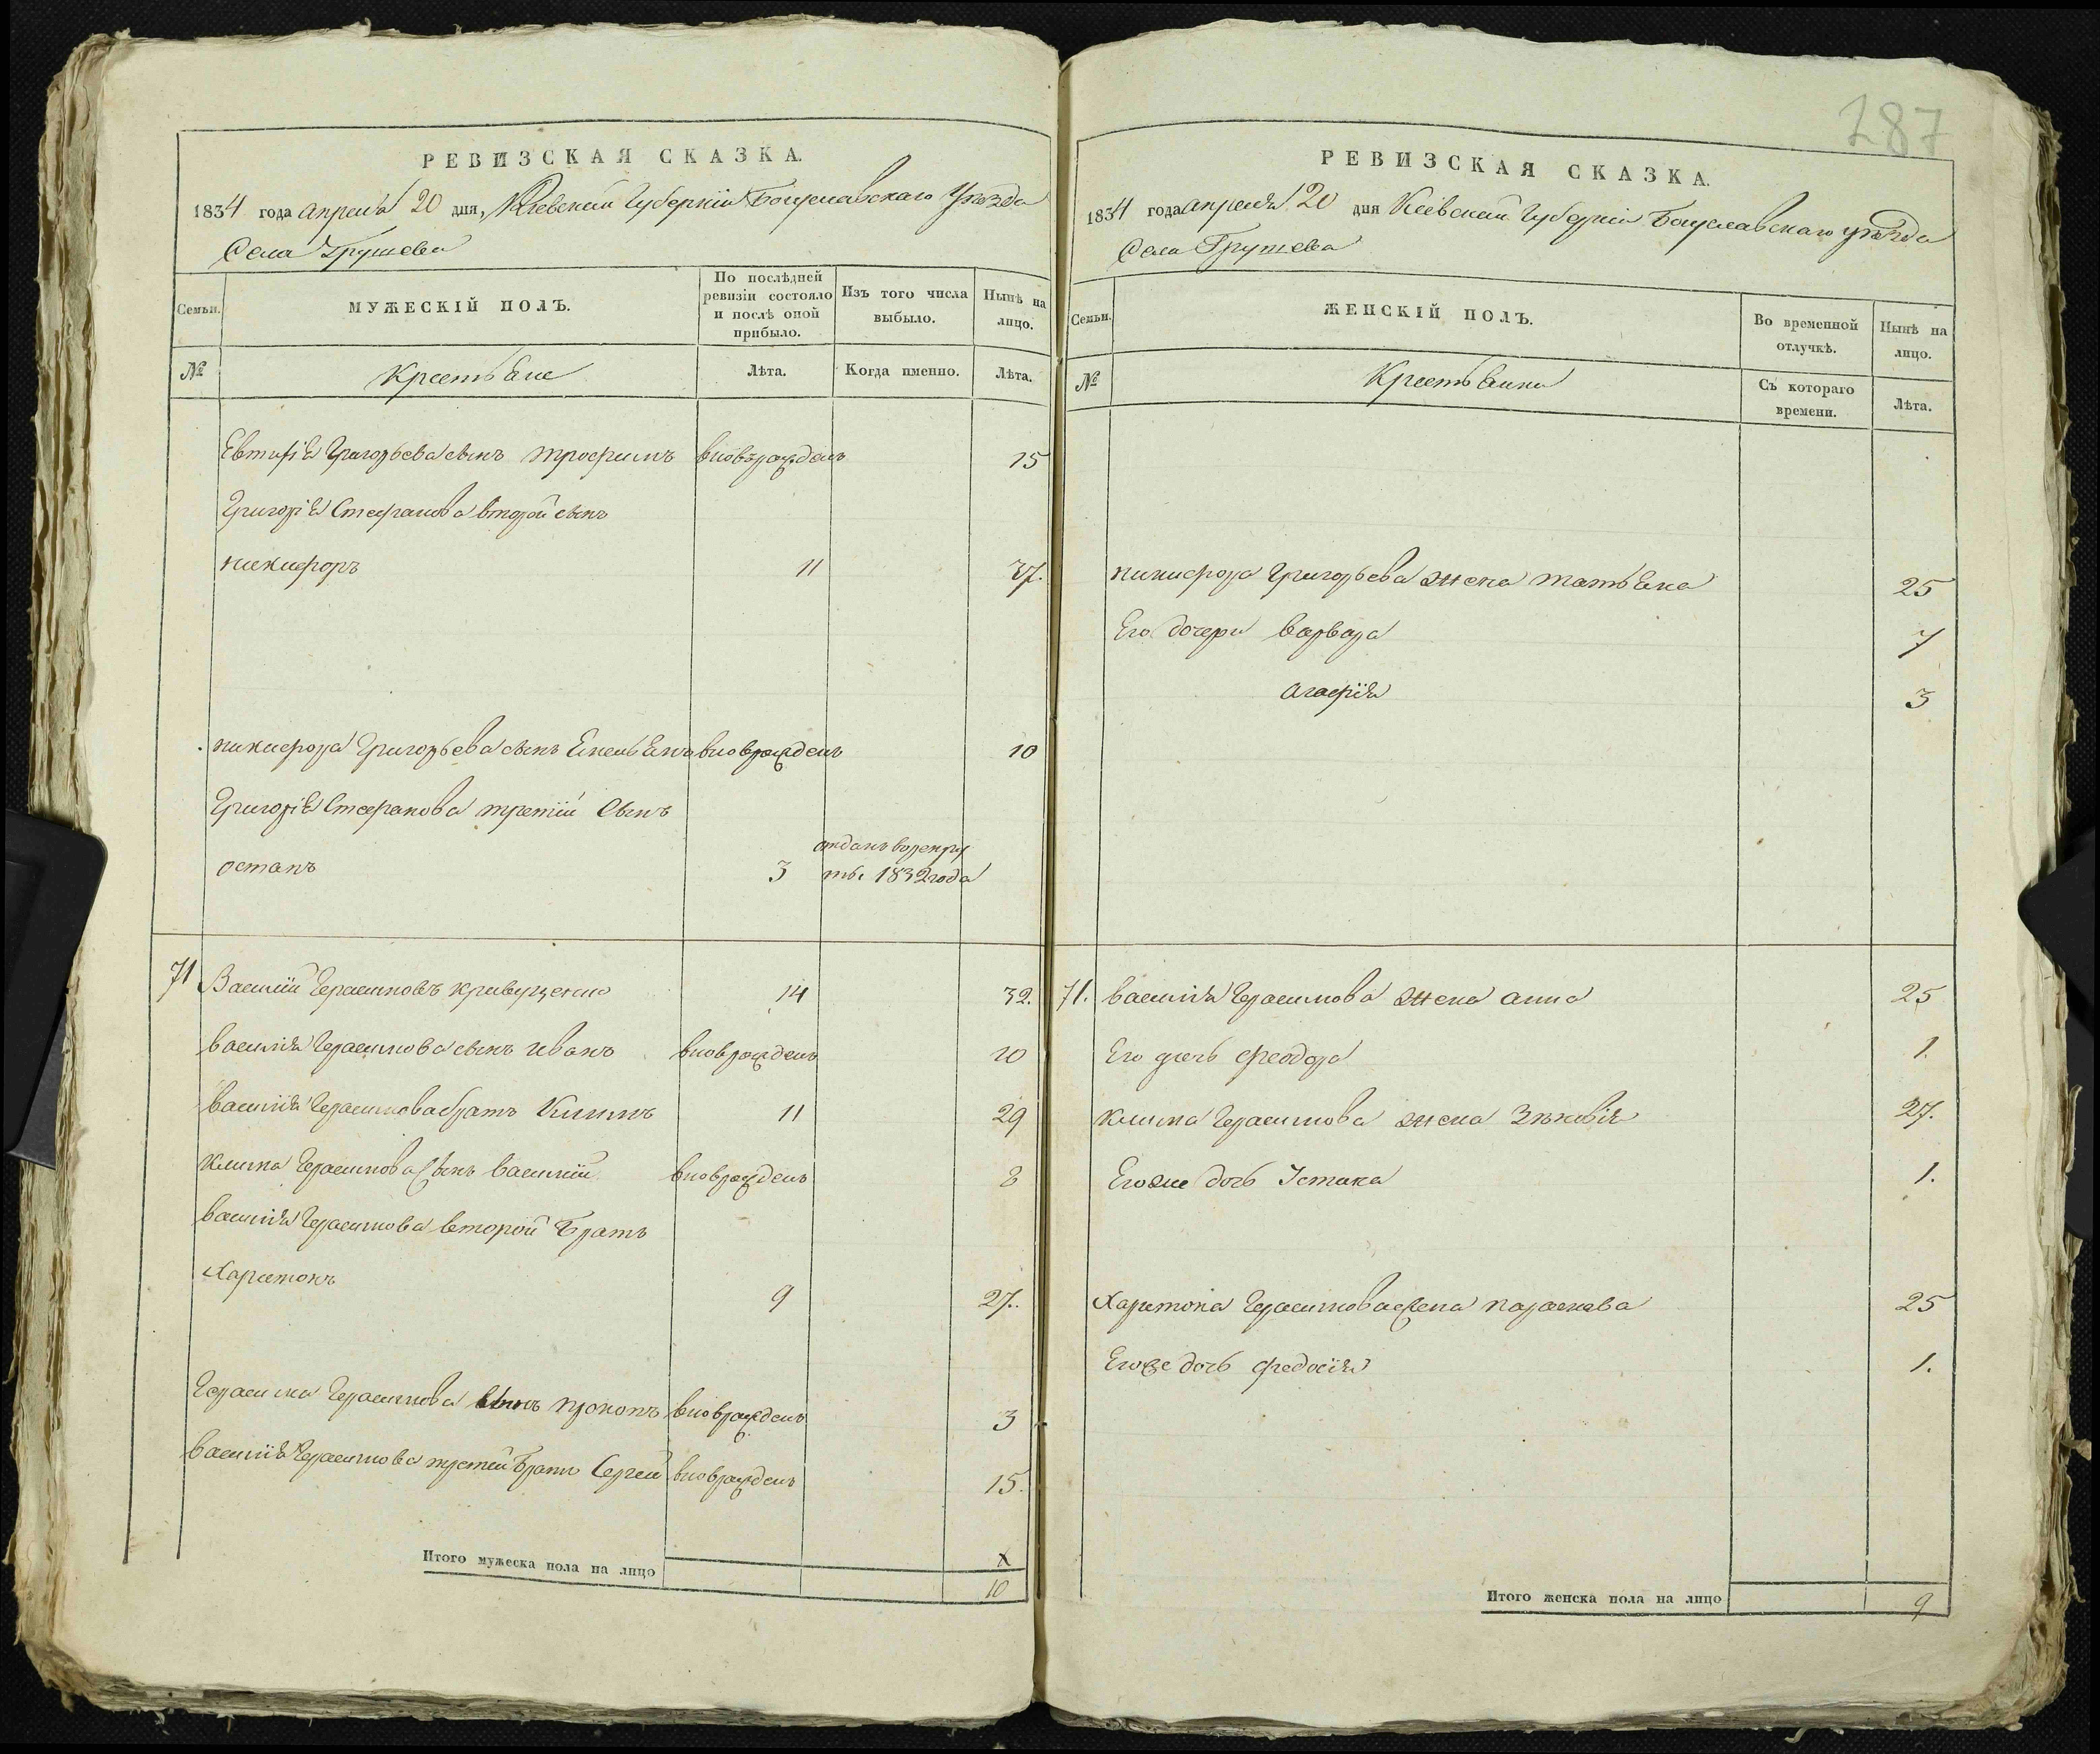 РЕВИЗСКАЯ СКАЗКА.
1834 года апреля 20 дня, Киевской Губернии Богуславского Уезда
Села Грушева
Семьи. МУЖЕСКІЙ ПОЛЪ. По послѣдней ревизіи состояло и послѣ оной прибыло. Изъ того числа выбыло. Нынѣ на лицо.
№ Крестьяне Лѣта. Когда именно. Лѣта.
Евтифія Григорьева сынъ трофимъ вновьрожденъ 15
Григорія Стефанова второй сынъ
никифоръ 11 37.
никифора Григорьева сынъ Емельянъ вноврожденъ 10
Григорія Стефанова третій Сынъ
остапъ 3 отданъ ворекру
ты 1832 года
71 Василій Герасимовъ кривущенко 14 32.
василія Герасимова сынъ иванъ вноврожденъ 10
василія Герасимова братъ Климъ 11 29
клима Герасимова Сынъ василій вноврожденъ 8
василія Герасимова второй Братъ
Харитонъ 9 27.
Герасима Герасимова сынъ прокопъ вноврожденъ 3
василія Герасимова третей Братъ Сергей вноврожденъ 15.
Итого мужеска пола на лицо х
10
287
РЕВИЗСКАЯ СКАЗКА.
1834 года апреля 20 дня Киевской Губерніи Богуславскаго уезда
Села Грушева
Семьи. ЖЕНСКІЙ ПОЛЪ. Во временной отлучкѣ. Нынѣ на лицо.
№ Крестьянки Съ котораго времени. Лѣта.
никифора Григорьева жена татьяна 25
Его дочери варвара 7
агафія 3
71. василія Герасимова жена анна 25
Его дочь феодора 1.
клима Герасимова жена Зѣновія 27.
Егоже дочь Устина 1.
Харитона Герасимова жена параскева 25
Егоже дочь федосія 1.
Итого женска пола на лицо 9